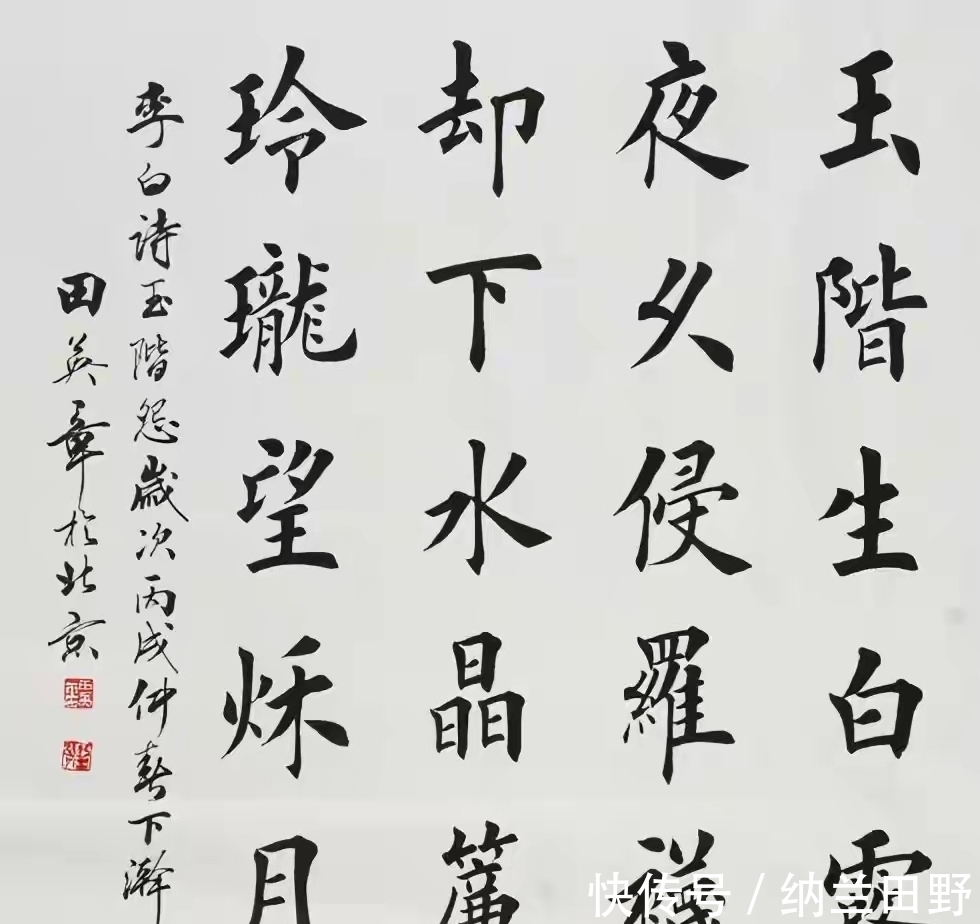 玉階生白露
夜久侵羅襪
却下水晶簾
玲瓏望秌月
李白詩玉階怨歲次丙戌仲春下澣
田英章於北京
快传号 / 纳兰田野